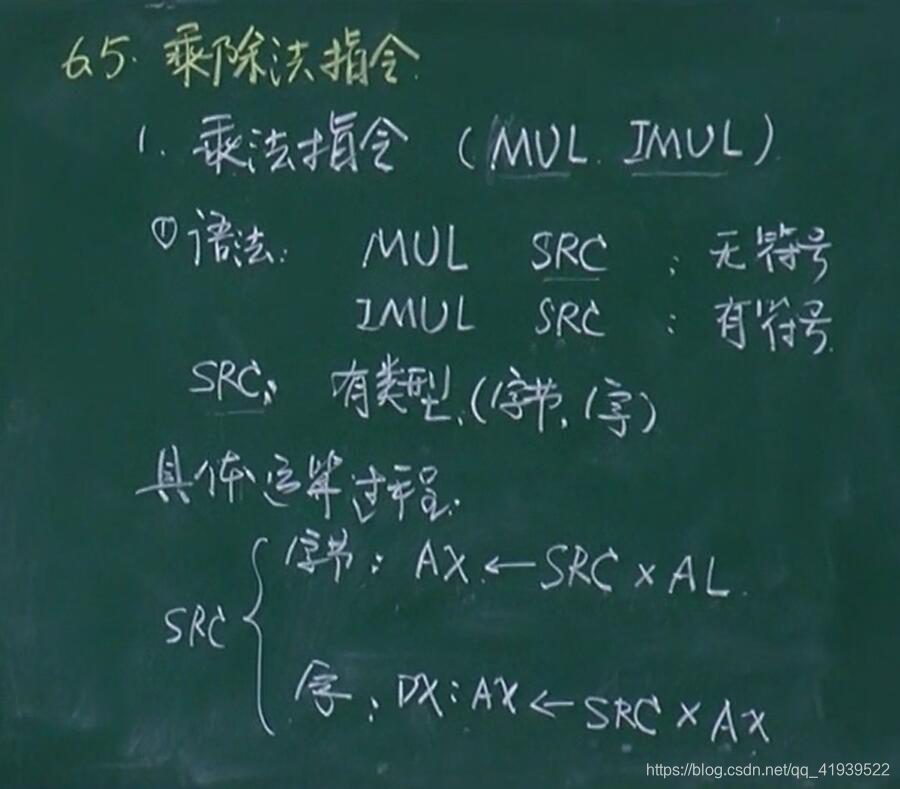 6.5. 乘除法指令.
1. 乘法指令 (MUL. IMUL).
① 语法: MUL SRC ; 无符号
IMUL SRC ; 有符号.
SRC: 有类型.(字节,字)
具体运算过程:
字节: AX ← SRC × AL.
SRC {
字: DX:AX ← SRC × AX
https://blog.csdn.net/qq_41939522